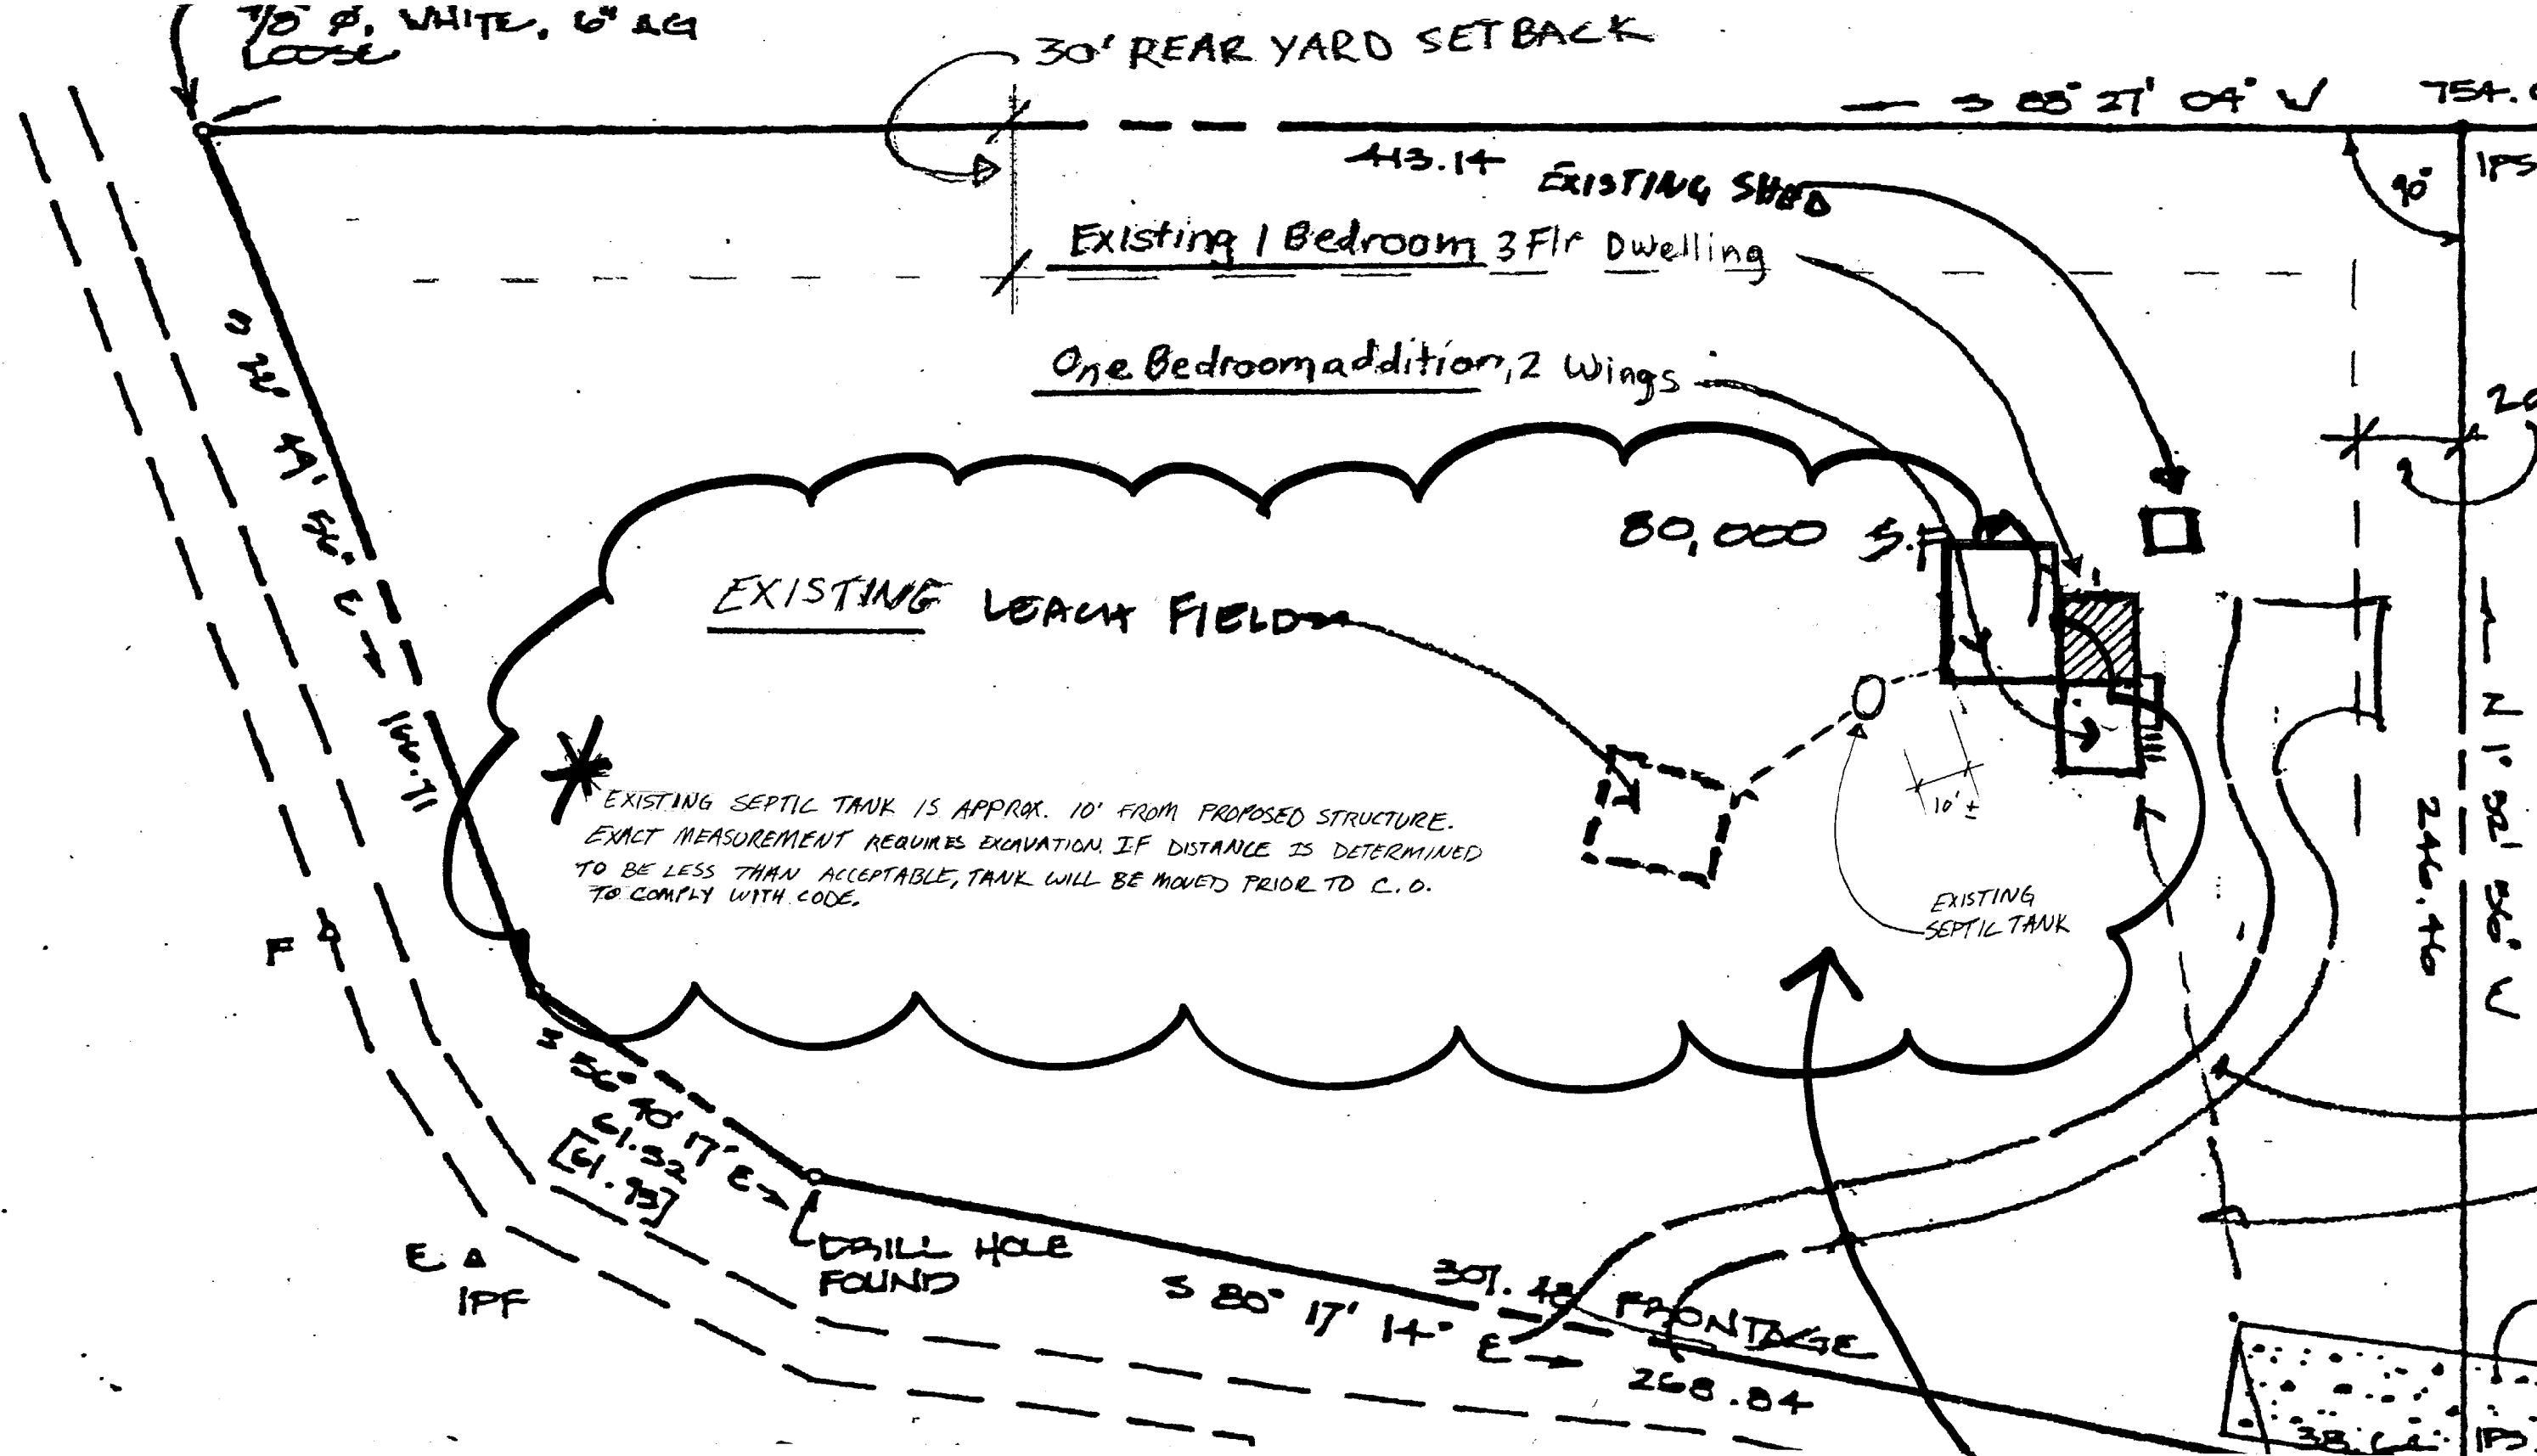 7/8" Ø, WHITE, 6" AG
LOOSE
30' REAR YARD SETBACK
S 88° 27' 04" W
754.
413.14
EXISTING SHED
90°
IPS
Existing 1 Bedroom 3 Flr Dwelling
One Bedroom addition, 2 Wings
20
80,000 S.F
EXISTING LEACH FIELD
166.71
EXISTING SEPTIC TANK IS APPROX. 10' FROM PROPOSED STRUCTURE.
EXACT MEASUREMENT REQUIRES EXCAVATION. IF DISTANCE IS DETERMINED
TO BE LESS THAN ACCEPTABLE, TANK WILL BE MOVED PRIOR TO C.O.
TO COMPLY WITH CODE.
10' ±
EXISTING
SEPTIC TANK
N 1° 32' 56" W
246.46
F
E
IPF
S 56° 70' 17" E
61.52
[61.93]
DRILL HOLE
FOUND
307.48 FRONTAGE
S 80° 17' 14" E
268.84
38
IPS